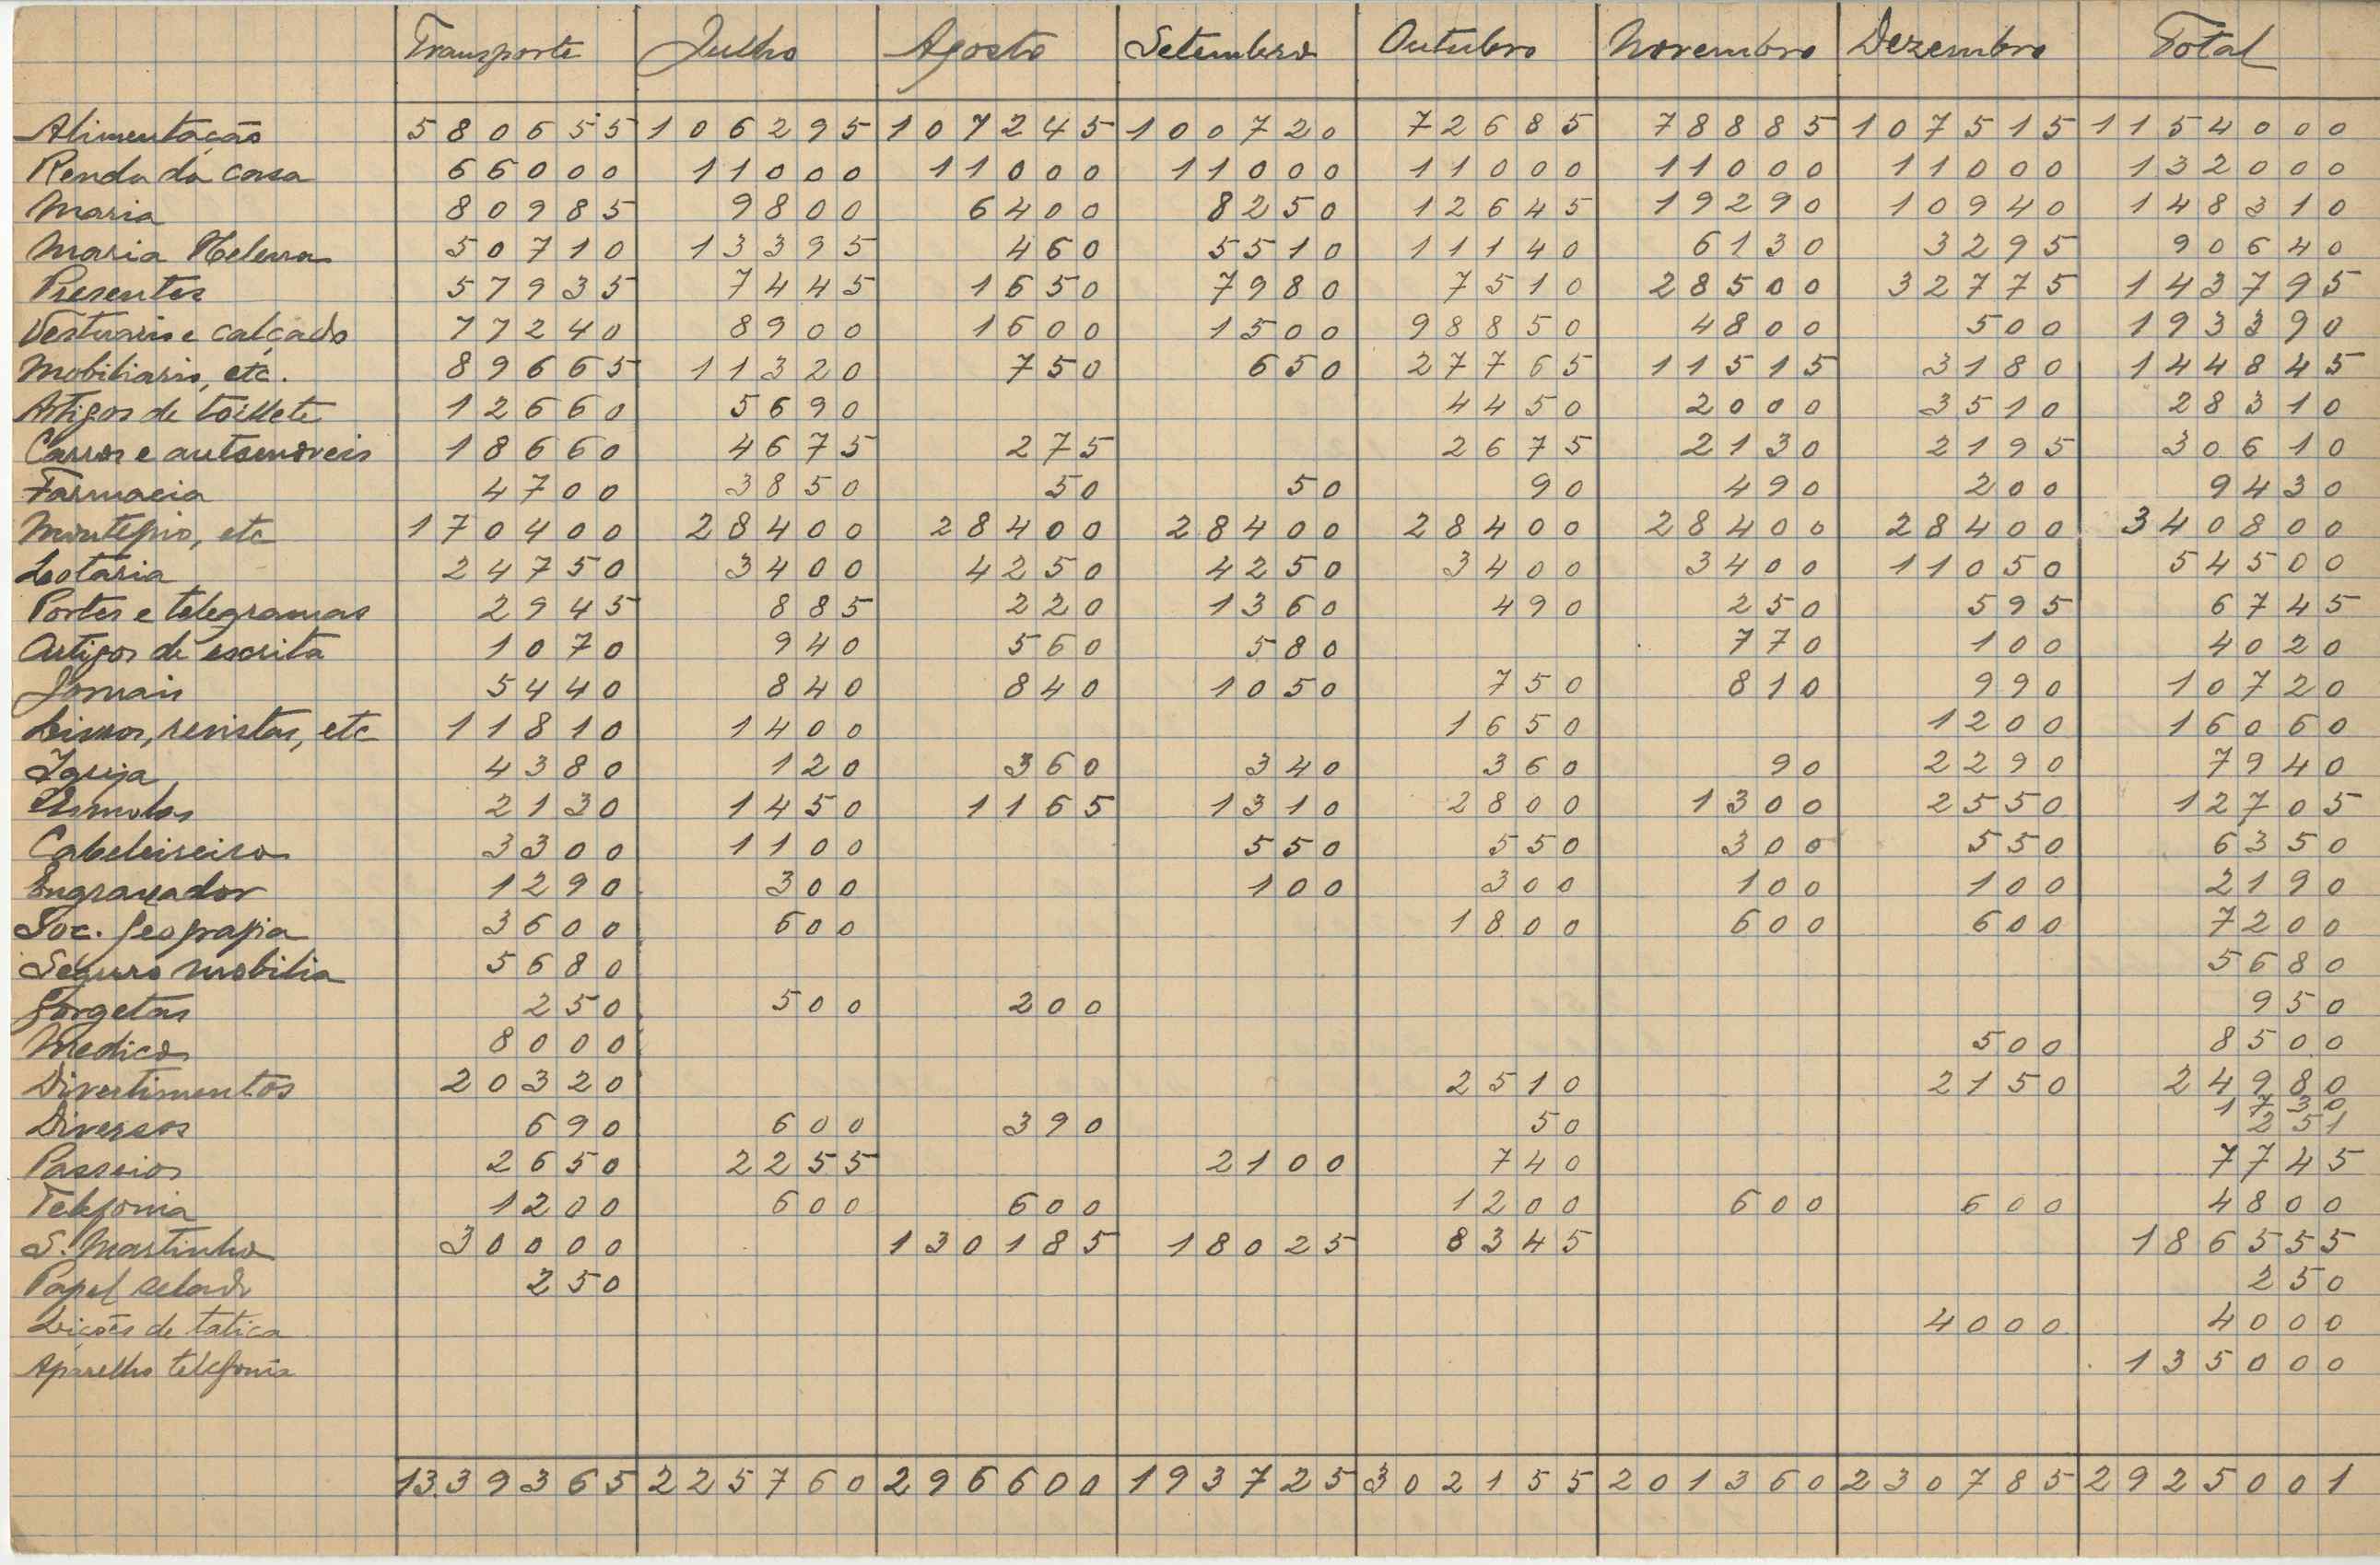 Transporte Julho Agosto Setembro Outubro Novembro Dezembro Total
Alimentação 580655 106295 107245 100720 72685 78885 107515 1154000
Renda da casa 66000 11000 11000 11000 11000 11000 11000 132000
Maria 80985 9800 6400 8250 12645 19290 10940 148310
Maria Helena 50710 13395 460 5510 11140 6130 3295 90640
Presentes 57935 7445 1650 7980 7510 28500 32775 143795
Vestuario e calçado 77240 8900 1600 1500 98850 4800 500 193390
Mobiliario, etc. 89665 11320 750 650 27765 11515 3180 144845
Artigos de toillete 12660 5690 4450 2000 3510 28310
Carros e automoveis 18660 4675 275 2675 2130 2195 30610
Farmacia 4700 3850 50 50 90 490 200 9430
Montepio, etc 170400 28400 28400 28400 28400 28400 28400 340800
Lotaria 24750 3400 4250 4250 3400 3400 11050 54500
Portes e telegramas 2945 885 220 1360 490 250 595 6745
Artigos de escrita 1070 940 560 580 770 100 4020
Jornais 5440 840 840 1050 750 810 990 10720
Livros, revistas, etc 11810 1400 1650 1200 16060
Igreja 4380 120 360 340 360 90 2290 7940
Esmolas 2130 1450 1165 1310 2800 1300 2550 12705
Cabeleireiro 3300 1100 550 550 300 550 6350
Engraxador 1290 300 100 300 100 100 2190
Soc. Geografia 3600 600 1800 600 600 7200
Seguro mobilia 5680 5680
Gorgetas 250 500 200 950
Medico 8000 500 8500
Divertimentos 20320 2510 2150 24980
Diversos 690 600 390 50 1730
251
Passeios 2650 2255 2100 740 7745
Telefonia 1200 600 600 1200 600 600 4800
S. Martinho 30000 130185 18025 8345 186555
Papel selado 250 250
Lições de tatica 4000 4000
Aparelho telefonia 135000
1339365 225760 296600 193725 302155 201360 230785 2925001